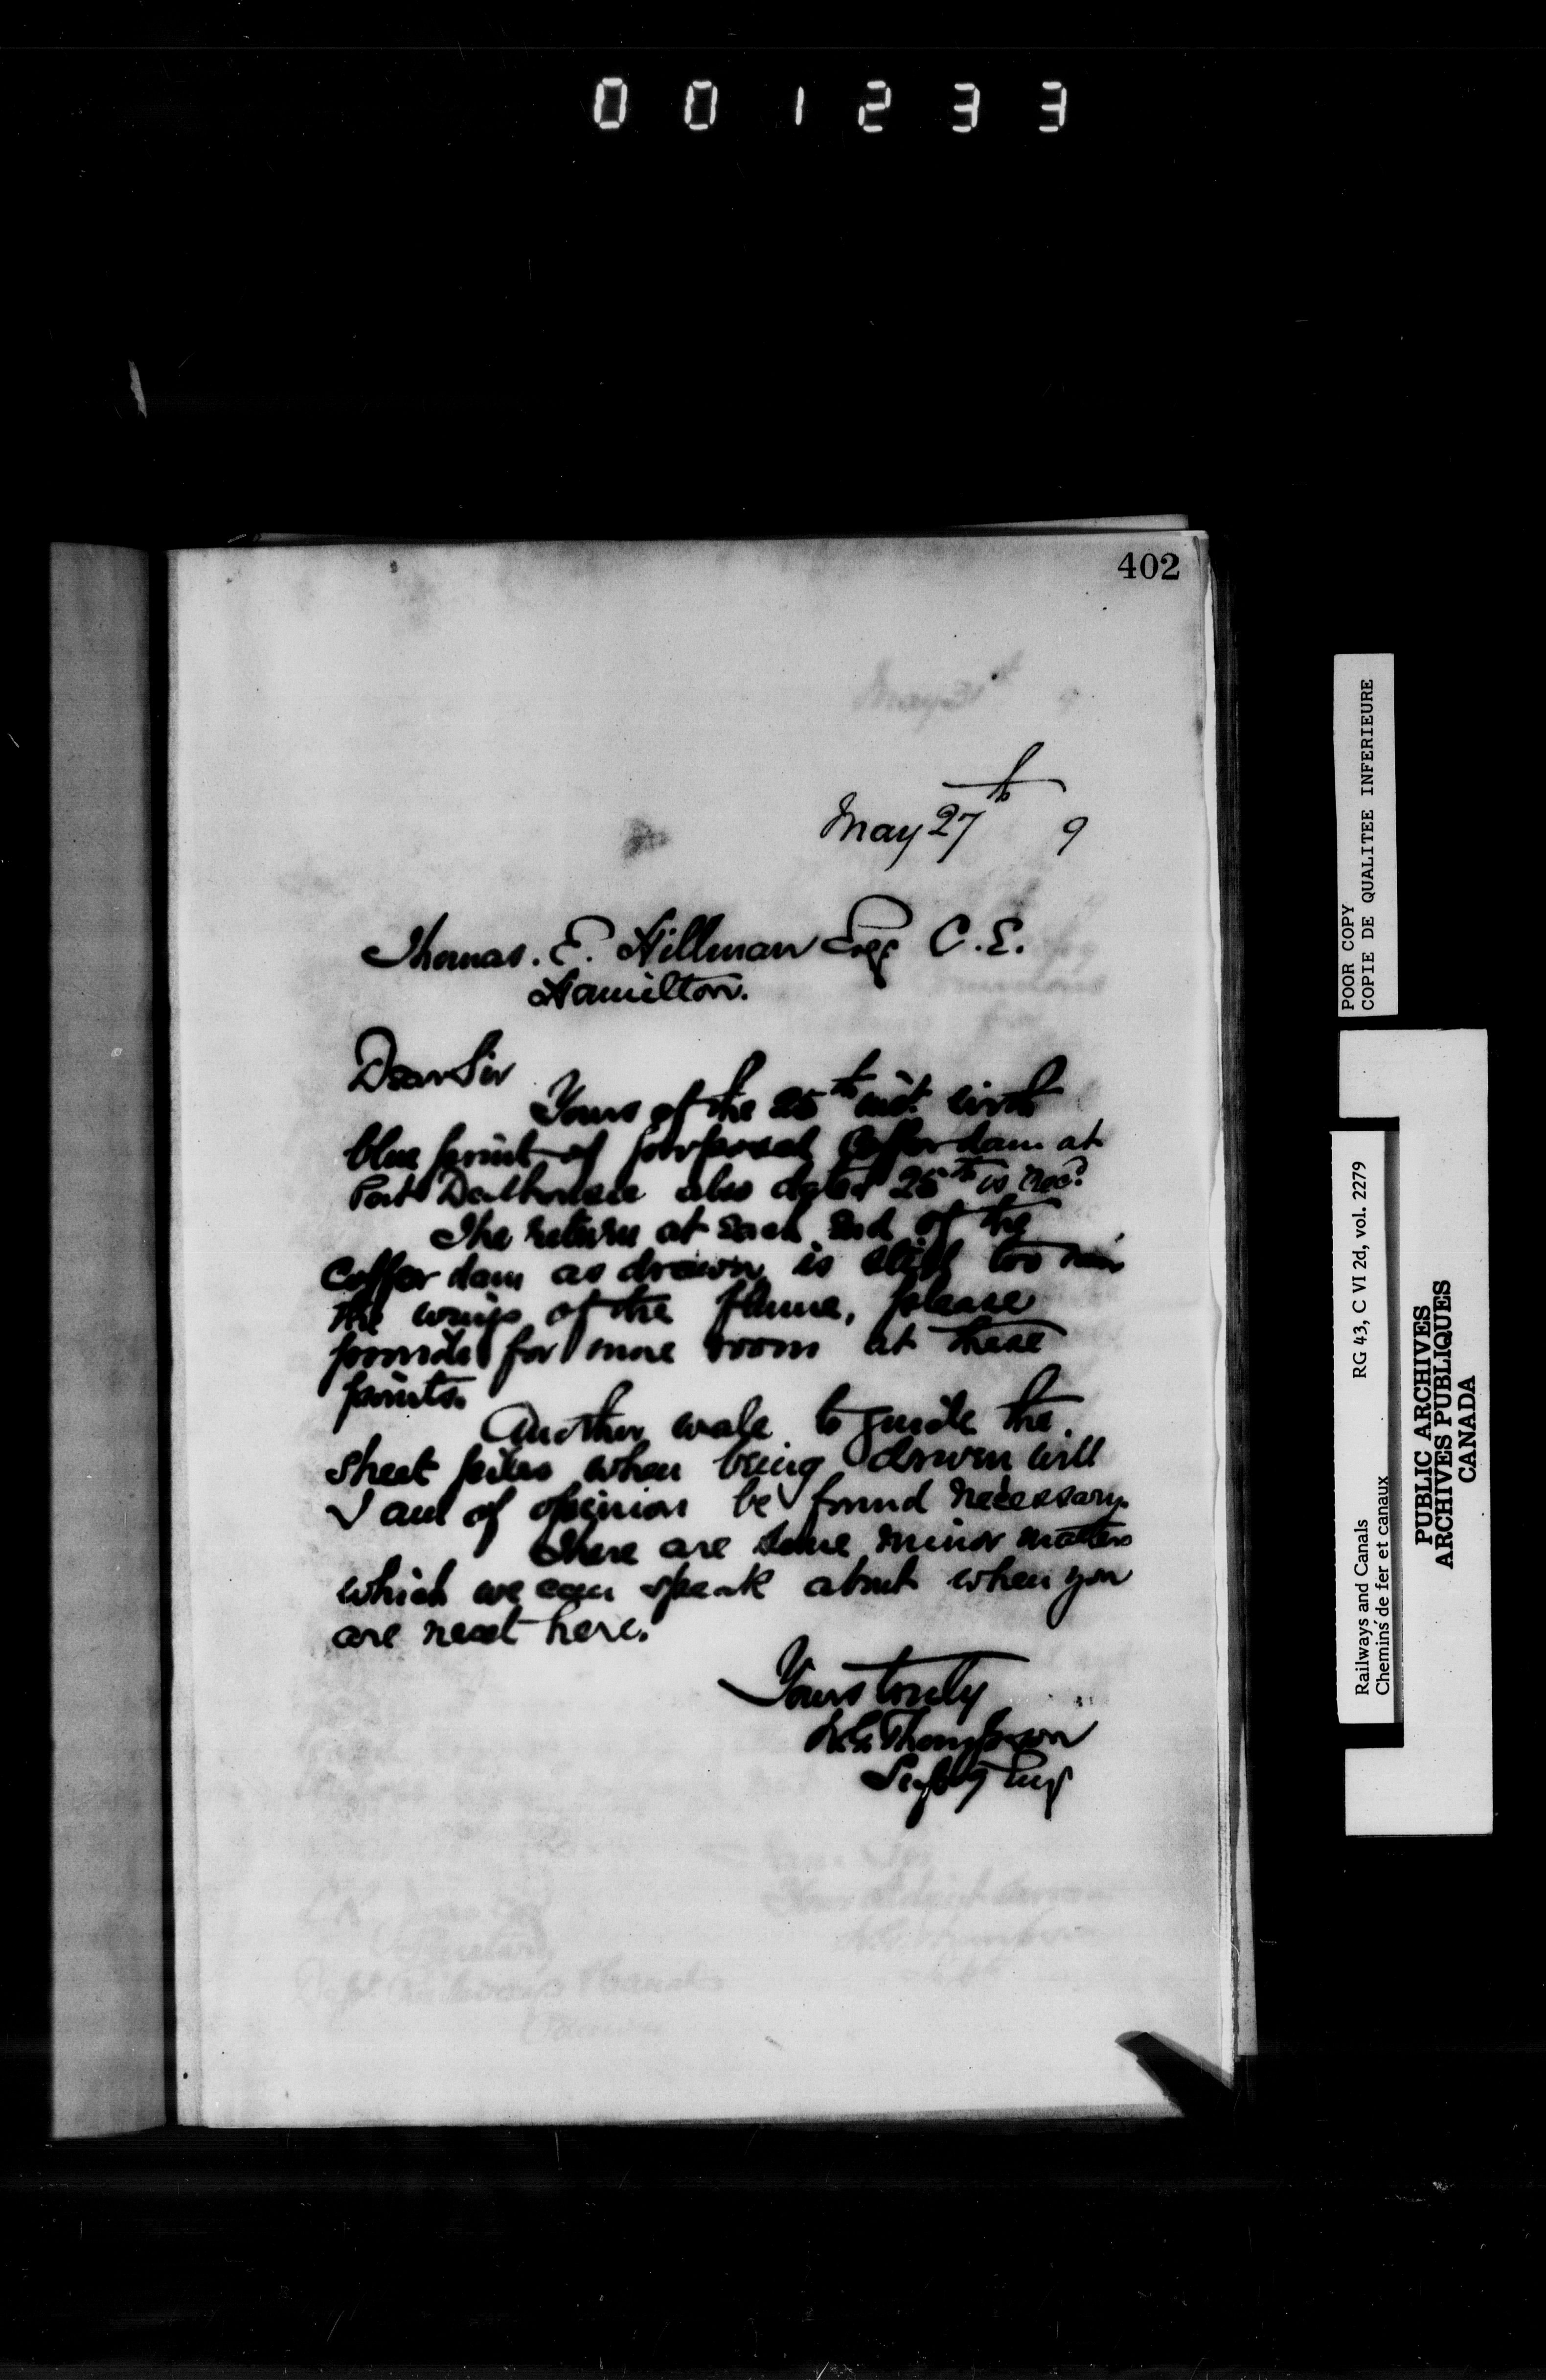 001233
402
May 27th 9
Thomas. E. Hillman Esq C. E.
Hamilton.
Dear Sir
Yours of the 25th inst. with
blue print of proposed Coffer dam at
Port Dalhousie also dated 25th is rec'd
The return at each end of the
Coffer dam as drawn is still too near
the wings of the flume, please
provide for more room at these
points.
Another wale to guide the
sheet piles when being driven will
I am of opinion be found necessary.
There are some minor matters
which we can speak about when you
are next here.
Yours truly
W.G. Thompson
Suptg Eng
POOR COPY
COPIE DE QUALITEE INFERIEURE
Railways and Canals RG 43, C VI 2d, vol. 2279
Chemins de fer et canaux
PUBLIC ARCHIVES
ARCHIVES PUBLIQUES
CANADA